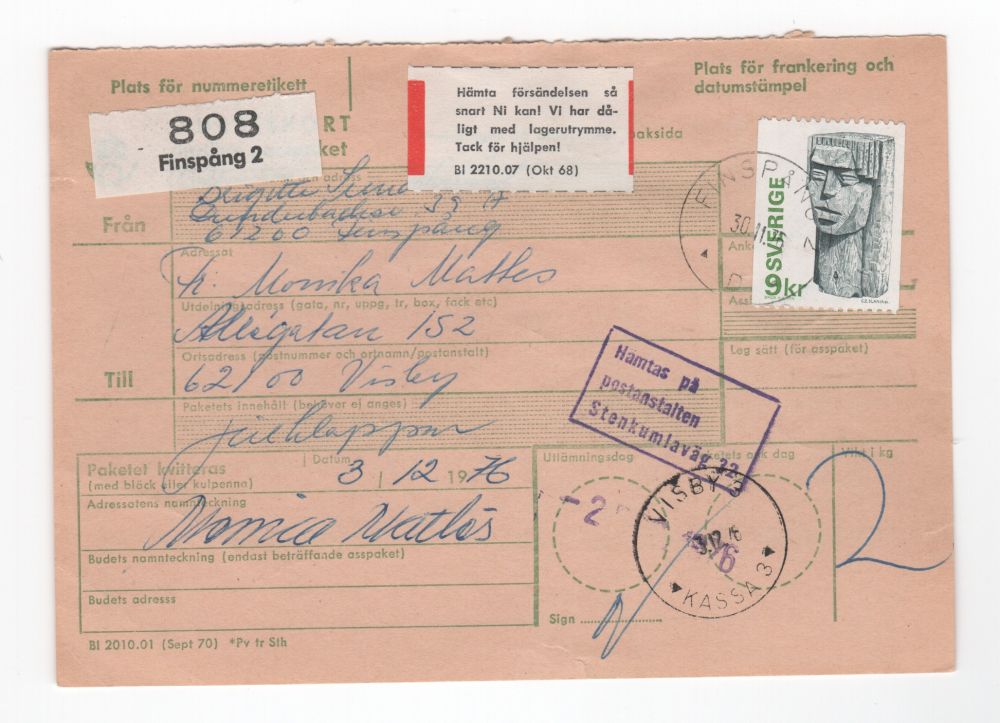 Plats för nummeretikett
Plats för frankering och
datumstämpel
808
Finspång 2
Hämta försändelsen så
snart Ni kan! Vi har då-
ligt med lagerutrymme.
Tack för hjälpen!
Bl 2210.07 (Okt 68)
RT
ket
baksida
FINSPÅNG 2
30.11.
SVERIGE
9kr
Från
Birgitta
39 A
61200 Finspång
Adressat
Fr. Monika Mattes
Utdelningsadress (gata, nr, uppg, tr, box, fack etc)
Allégatan 152
Ortsadress (postnummer och ortnamn/postanstalt)
Leg sätt (för asspaket)
Till
62100 Visby
Hämtas på
postanstalten
Stenkumlaväg 32
Paketets innehåll (behöver ej anges)
Paketet kvitteras
(med bläck eller kulpenna)
Datum
3 / 12 1976
Utlämningsdag
Vikt i kg
2
Adressatens namnteckning
Monica Mattes
-2
VISBY 3
3.12.76
KASSA 3
Budets namnteckning (endast beträffande asspaket)
Budets adress
Sign
Bl 2010.01 (Sept 70) *Pv tr Sth